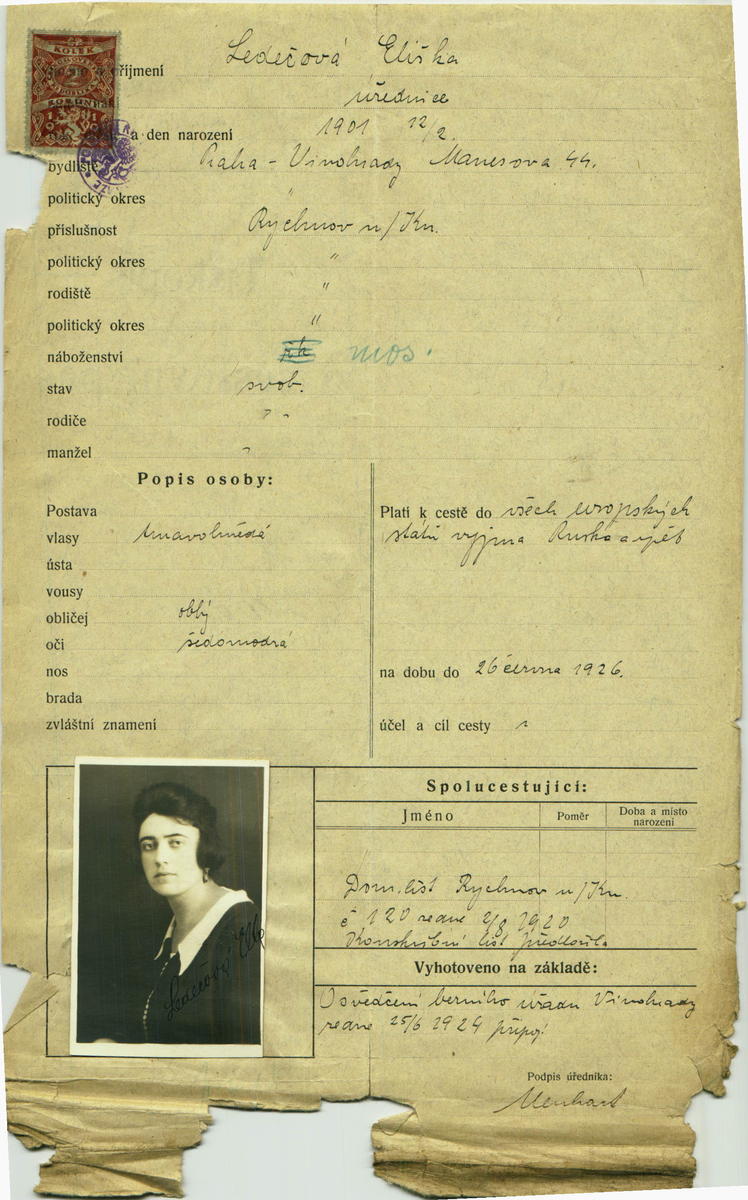 KOLEK
2
příjmení Ledečová Eliška
úřednice
a den narození 1901 12/2.
bydliště Praha - Vinohrady Manesova 44.
politický okres "
příslušnost Rychnov n/Kn.
politický okres "
rodiště "
politický okres "
náboženství mos.
stav svob.
rodiče
manžel
Popis osoby:
Postava
vlasy tmavohnědé
ústa
vousy
obličej oblý
oči šedomodrá
nos
brada
zvláštní znamení
Platí k cestě do všech evropských
států vyjma Ruska a zpět
na dobu do 26 června 1926.
účel a cíl cesty
Spolucestující:
Jméno Poměr Doba a místo
narození
Dom. list Rychnov n/Kn.
č 120 ze dne 2/8 1920
Konskribční list předložila
Vyhotoveno na základě:
Osvědčení berního úřadu Vinohrady
ze dne 25/6 1924 připoj.
Podpis úředníka:
Menhart
Ledečová Ella